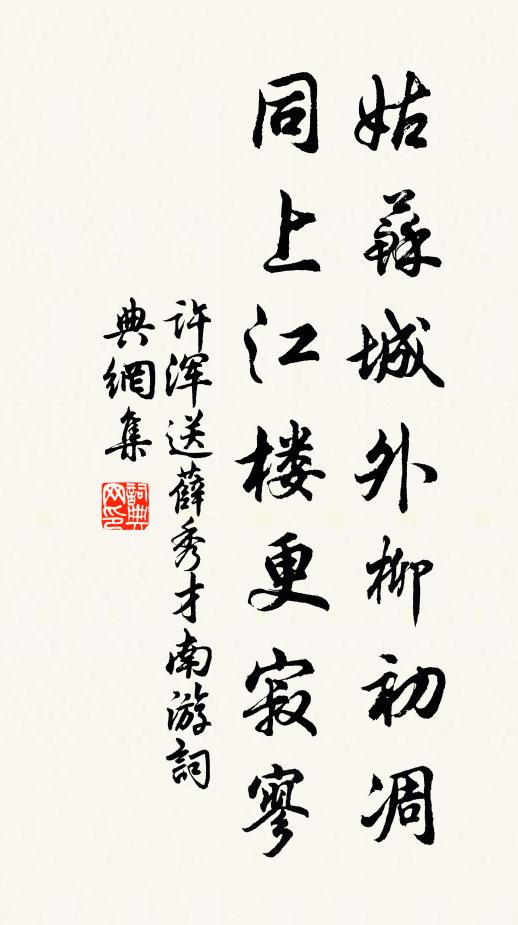 姑蘇城外柳初凋
同上江楼更寂寥
许浑送薛秀才南游詞
典網集
詞典
网印